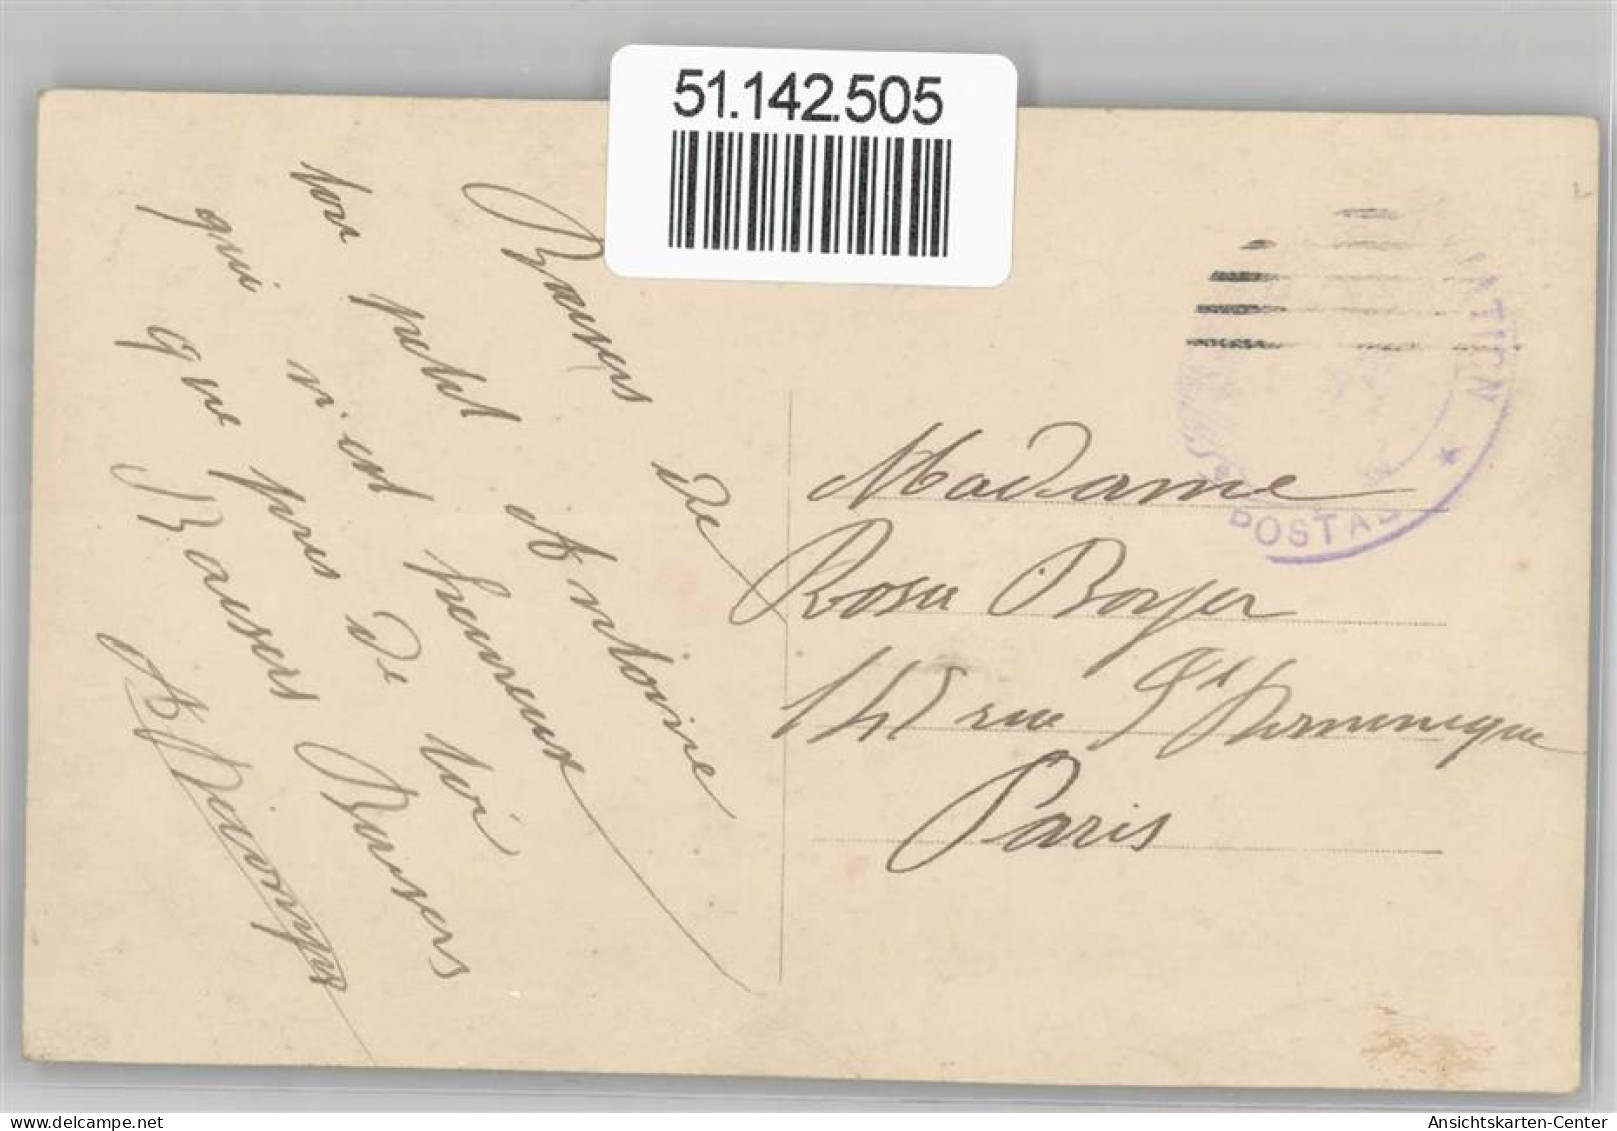 51.142.505
Baisers de
ton petit Antoine
qui n'est heureux
que près de toi
Baisers Baisers
A
Madame
Rosa Boyer
rue St Dominique
Paris
POSTAL
*
Ansichtskarten-Center